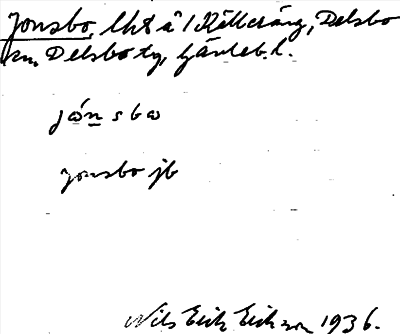 Jonsbo, lht å 1 Källeräng, Delsbo
sn, Delsbo tg, Gävleb. l.
jónsbω
jonsbo jb
Nils Erik Erikson 1936.